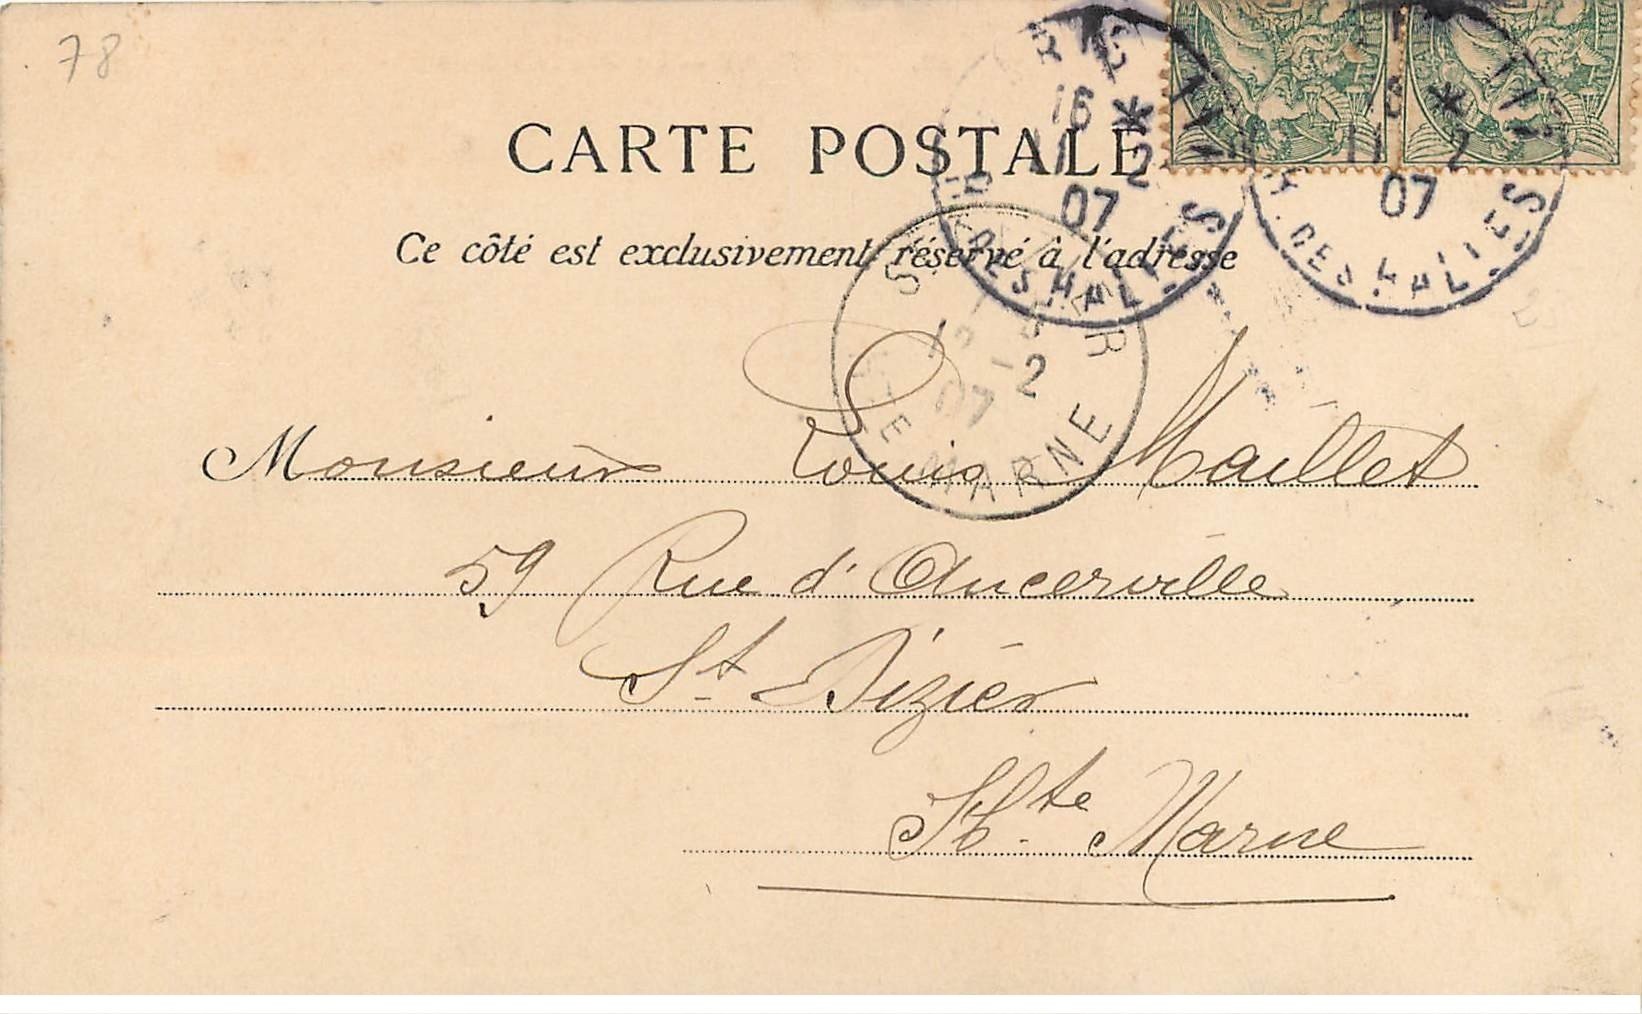 78
CARTE POSTALE
Ce côté est exclusivement réservé à l'adresse
16 *
11 2
07
R. DES HALLES
11 2
07
R. DES HALLES
2
07
HTE MARNE
Monsieur Louis Maillet
59 Rue d'Ancerville
St Dizier
Hte Marne